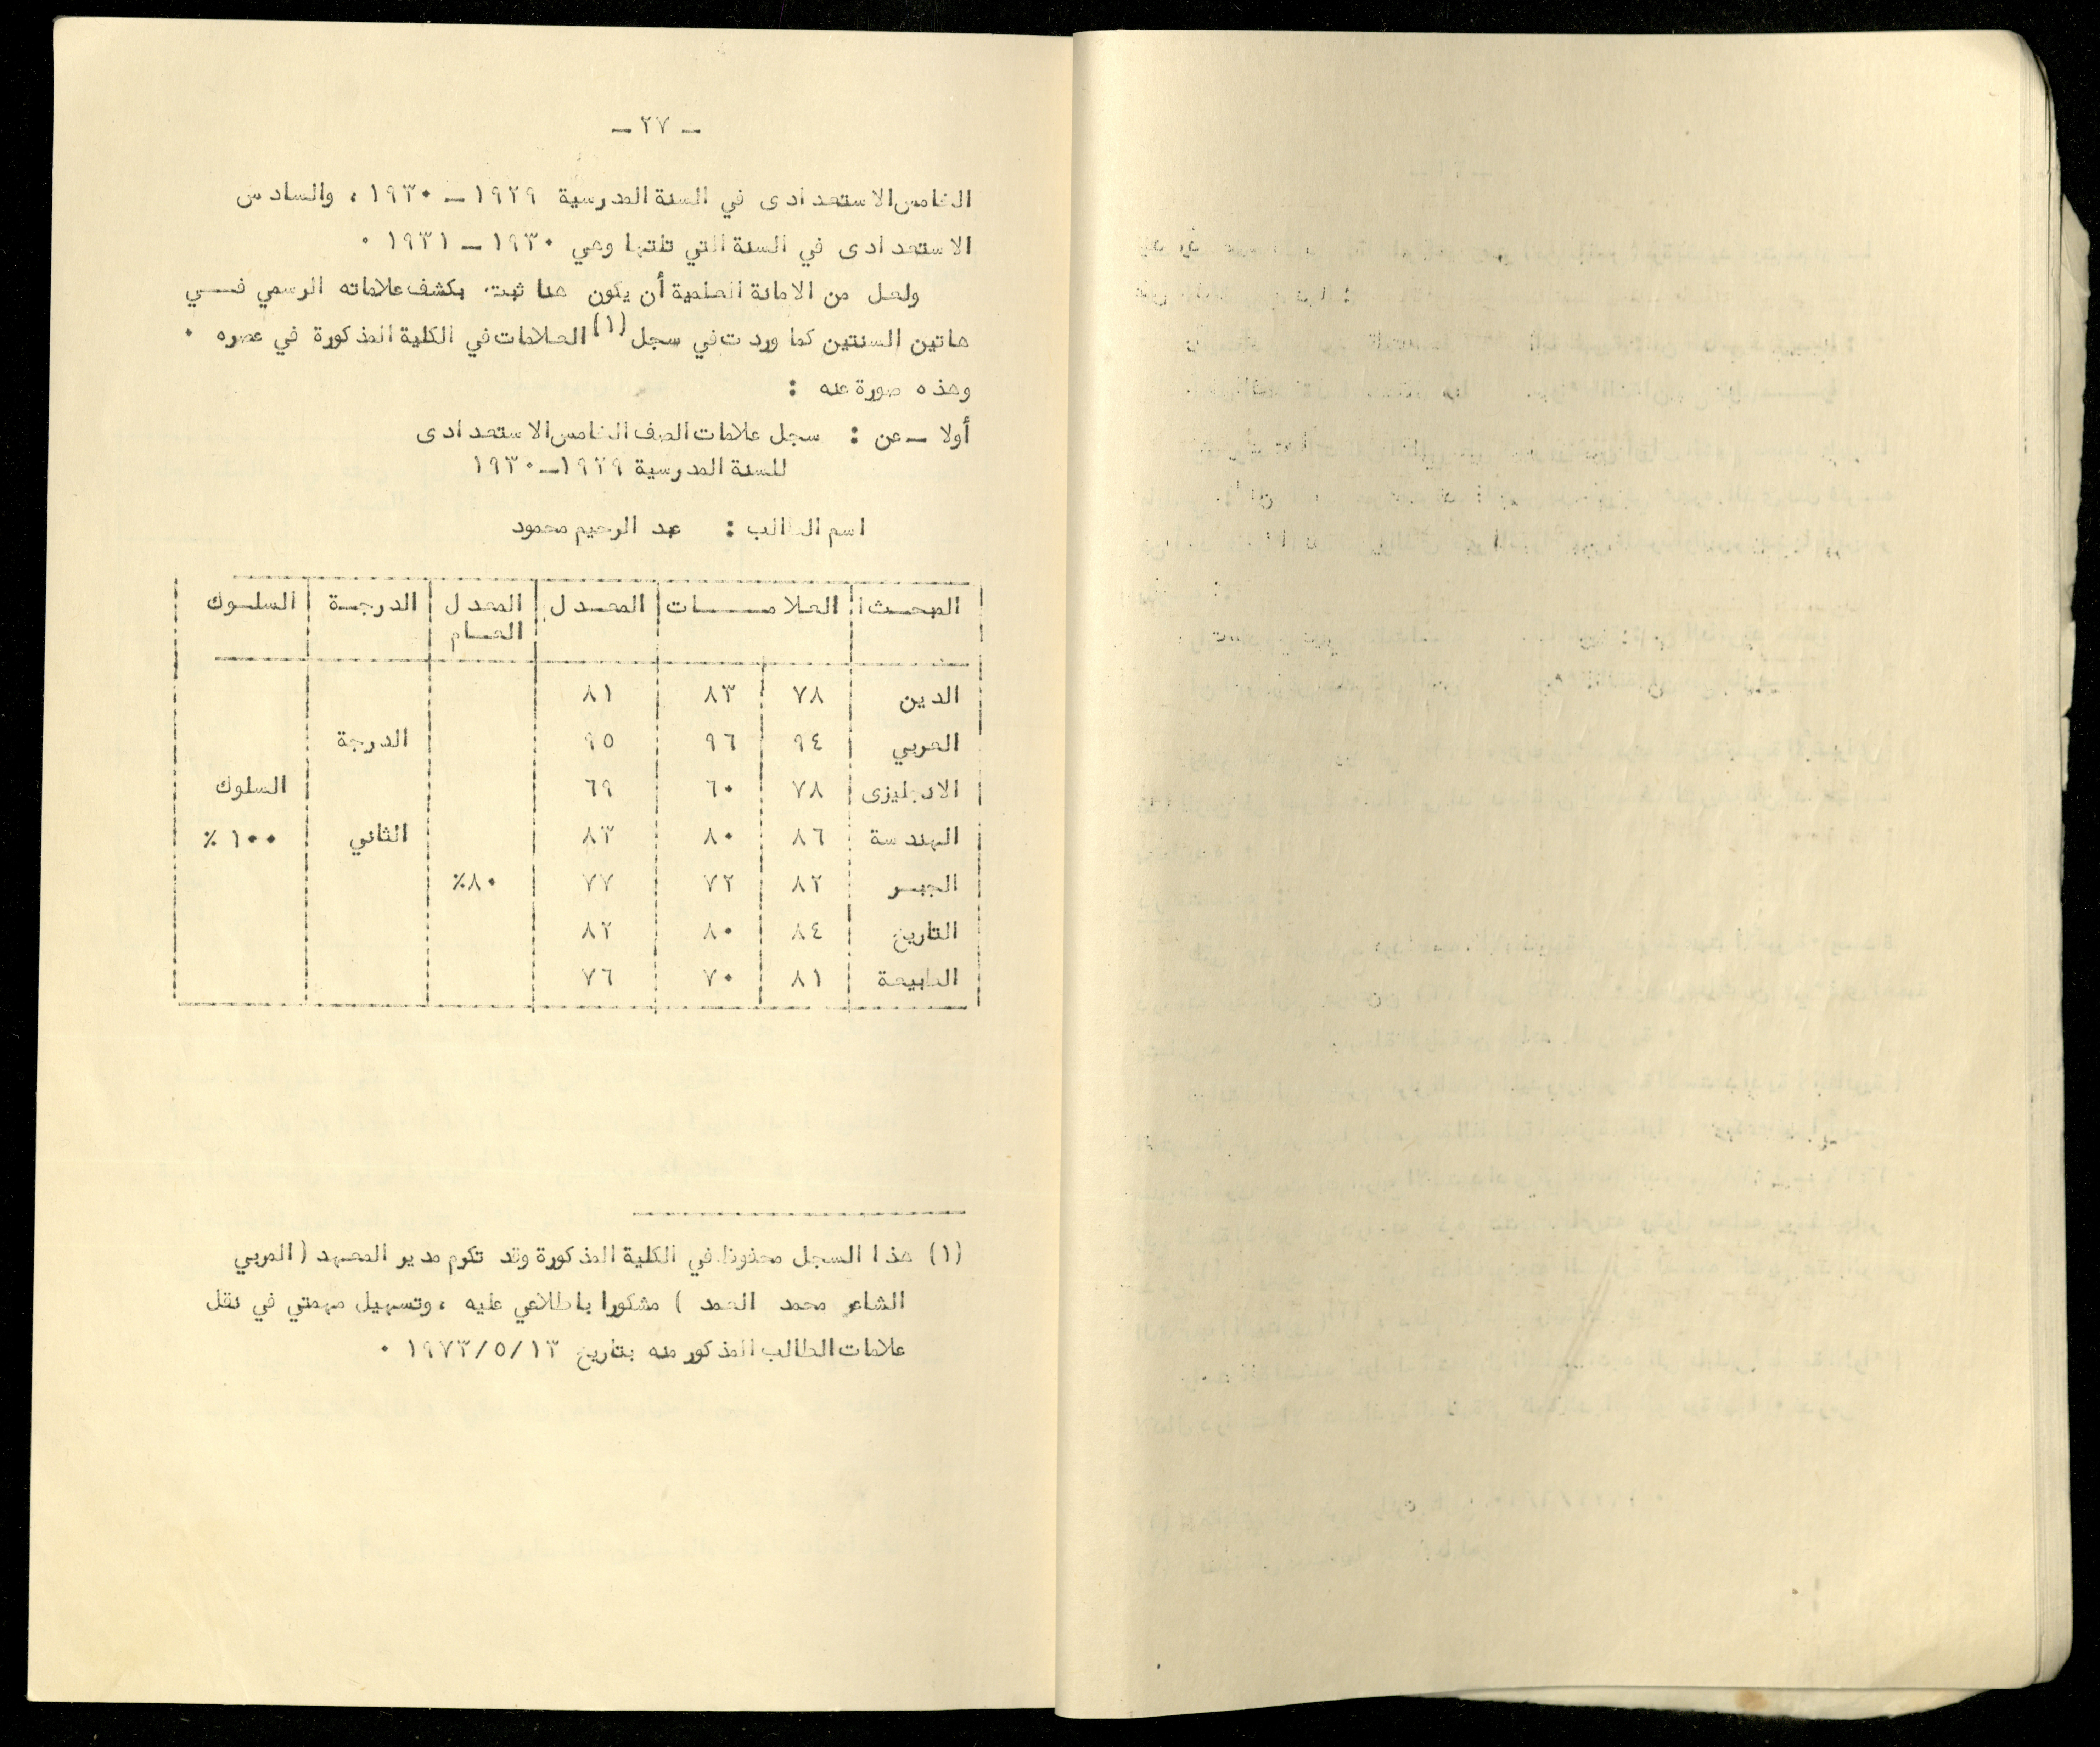 ـ ٢٧ ـ
الخامس الاستعدادى في السنة المدرسية ١٩٢٩ ـ ١٩٣٠ ، والسادس
الاستعدادى في السنة التي تلتها وهي ١٩٣٠ ـ ١٩٣١ ٠
ولعل من الامانة العلمية أن يكون هنا ثبت بكشف علاماته الرسمي فــي
هاتين السنتين كما وردت في سجل (١) العلامات في الكلية المذكورة في عصره ٠
وهذه صورة عنه :
أولا ـ عن : سجل علامات الصف الخامس الاستعدادى
للسنة المدرسية ١٩٢٩ـ١٩٣٠
اسم الطالب : عبد الرحيم محمود
المبحــث العلامـــــات المعــدل المعدل الدرجــة السلــوك
العــام
الدين ٧٨ ٨٣ ٨١
العربي ٩٤ ٩٦ ٩٥ الدرجة
الانجليزى ٧٨ ٦٠ ٦٩ السلوك
الهندسة ٨٦ ٨٠ ٨٣ الثاني ١٠٠ ٪
الجبــر ٨٢ ٧٢ ٧٧ ٨٠٪
التاريخ ٨٤ ٨٠ ٨٢
الطبيعة ٨١ ٧٠ ٧٦
(١) هذا السجل محفوظ في الكلية المذكورة وقد تكرم مدير المعهد ( المربي
الشاعر محمد العمد ) مشكورا باطلاعي عليه ، وتسهيل مهمتي في نقل
علامات الطالب المذكور منه بتاريخ ١٩٧٣/٥/١٣ ٠